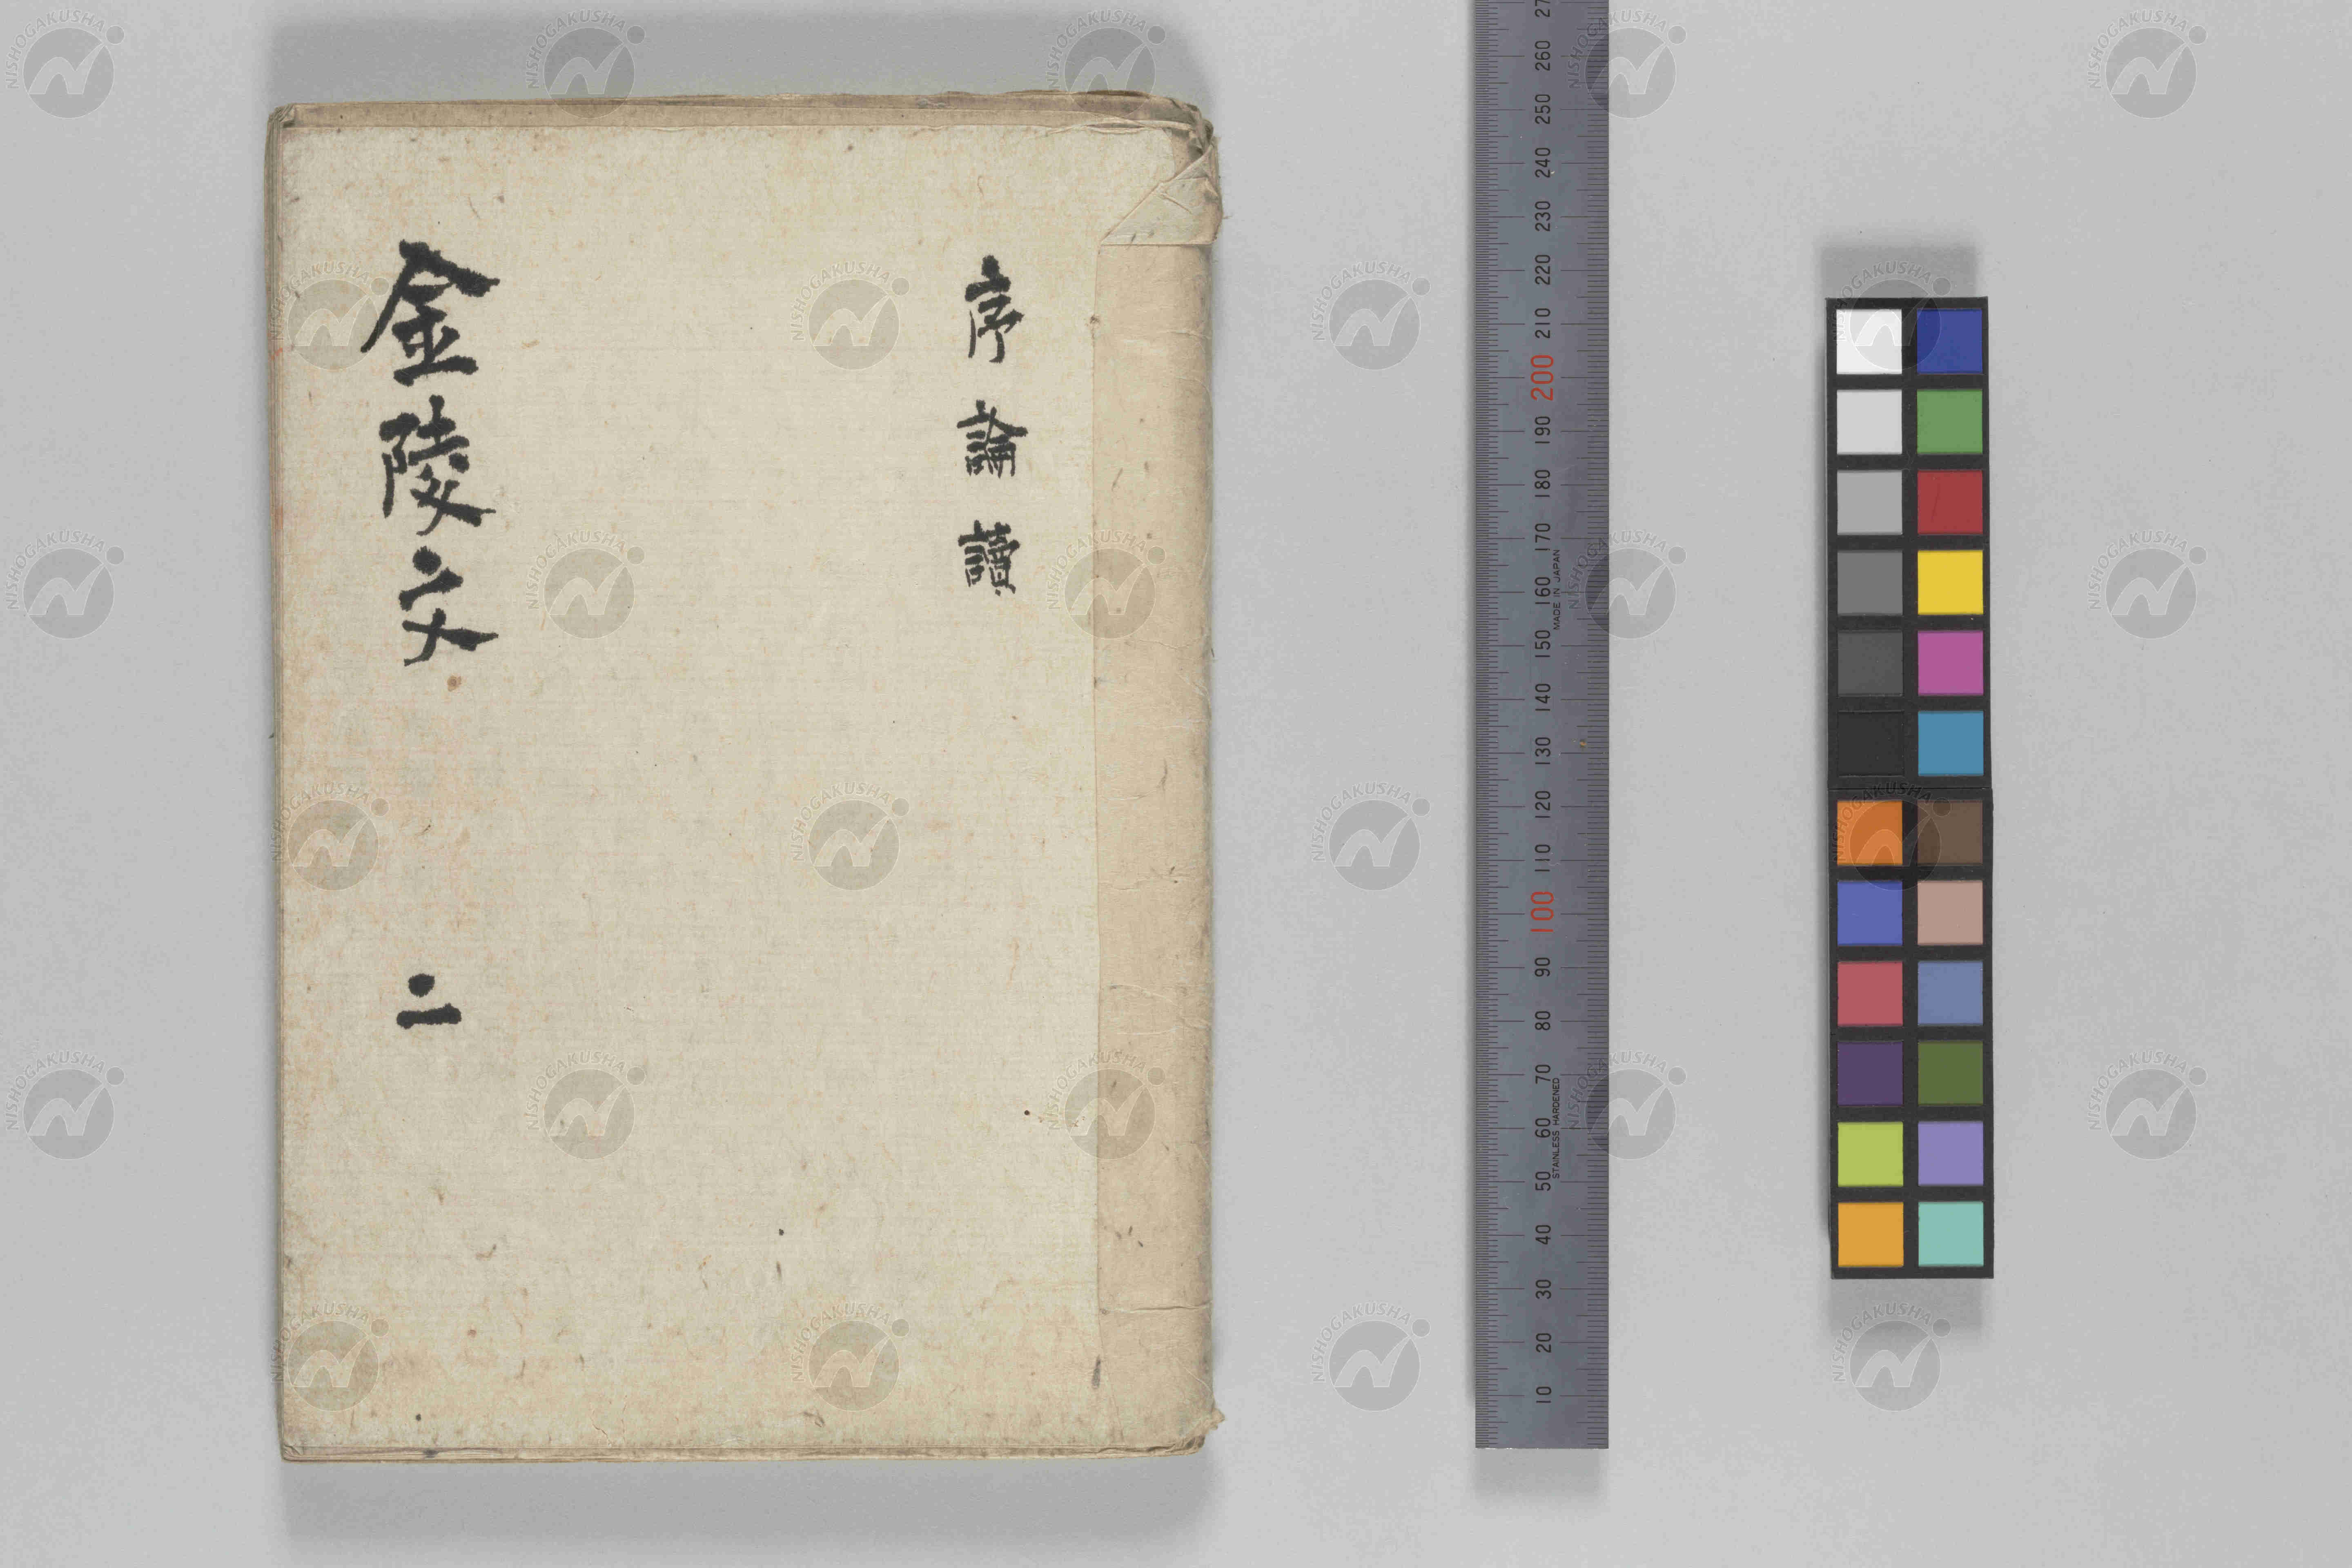 序論讀
金陵文 二
270
260
250
240
230
220
210
200
190
180
170
160
150
140
130
120
110
100
90
80
70
60
50
40
30
20
10
MADE IN JAPAN
STAINLESS HARDENED
NISHOGAKUSHA